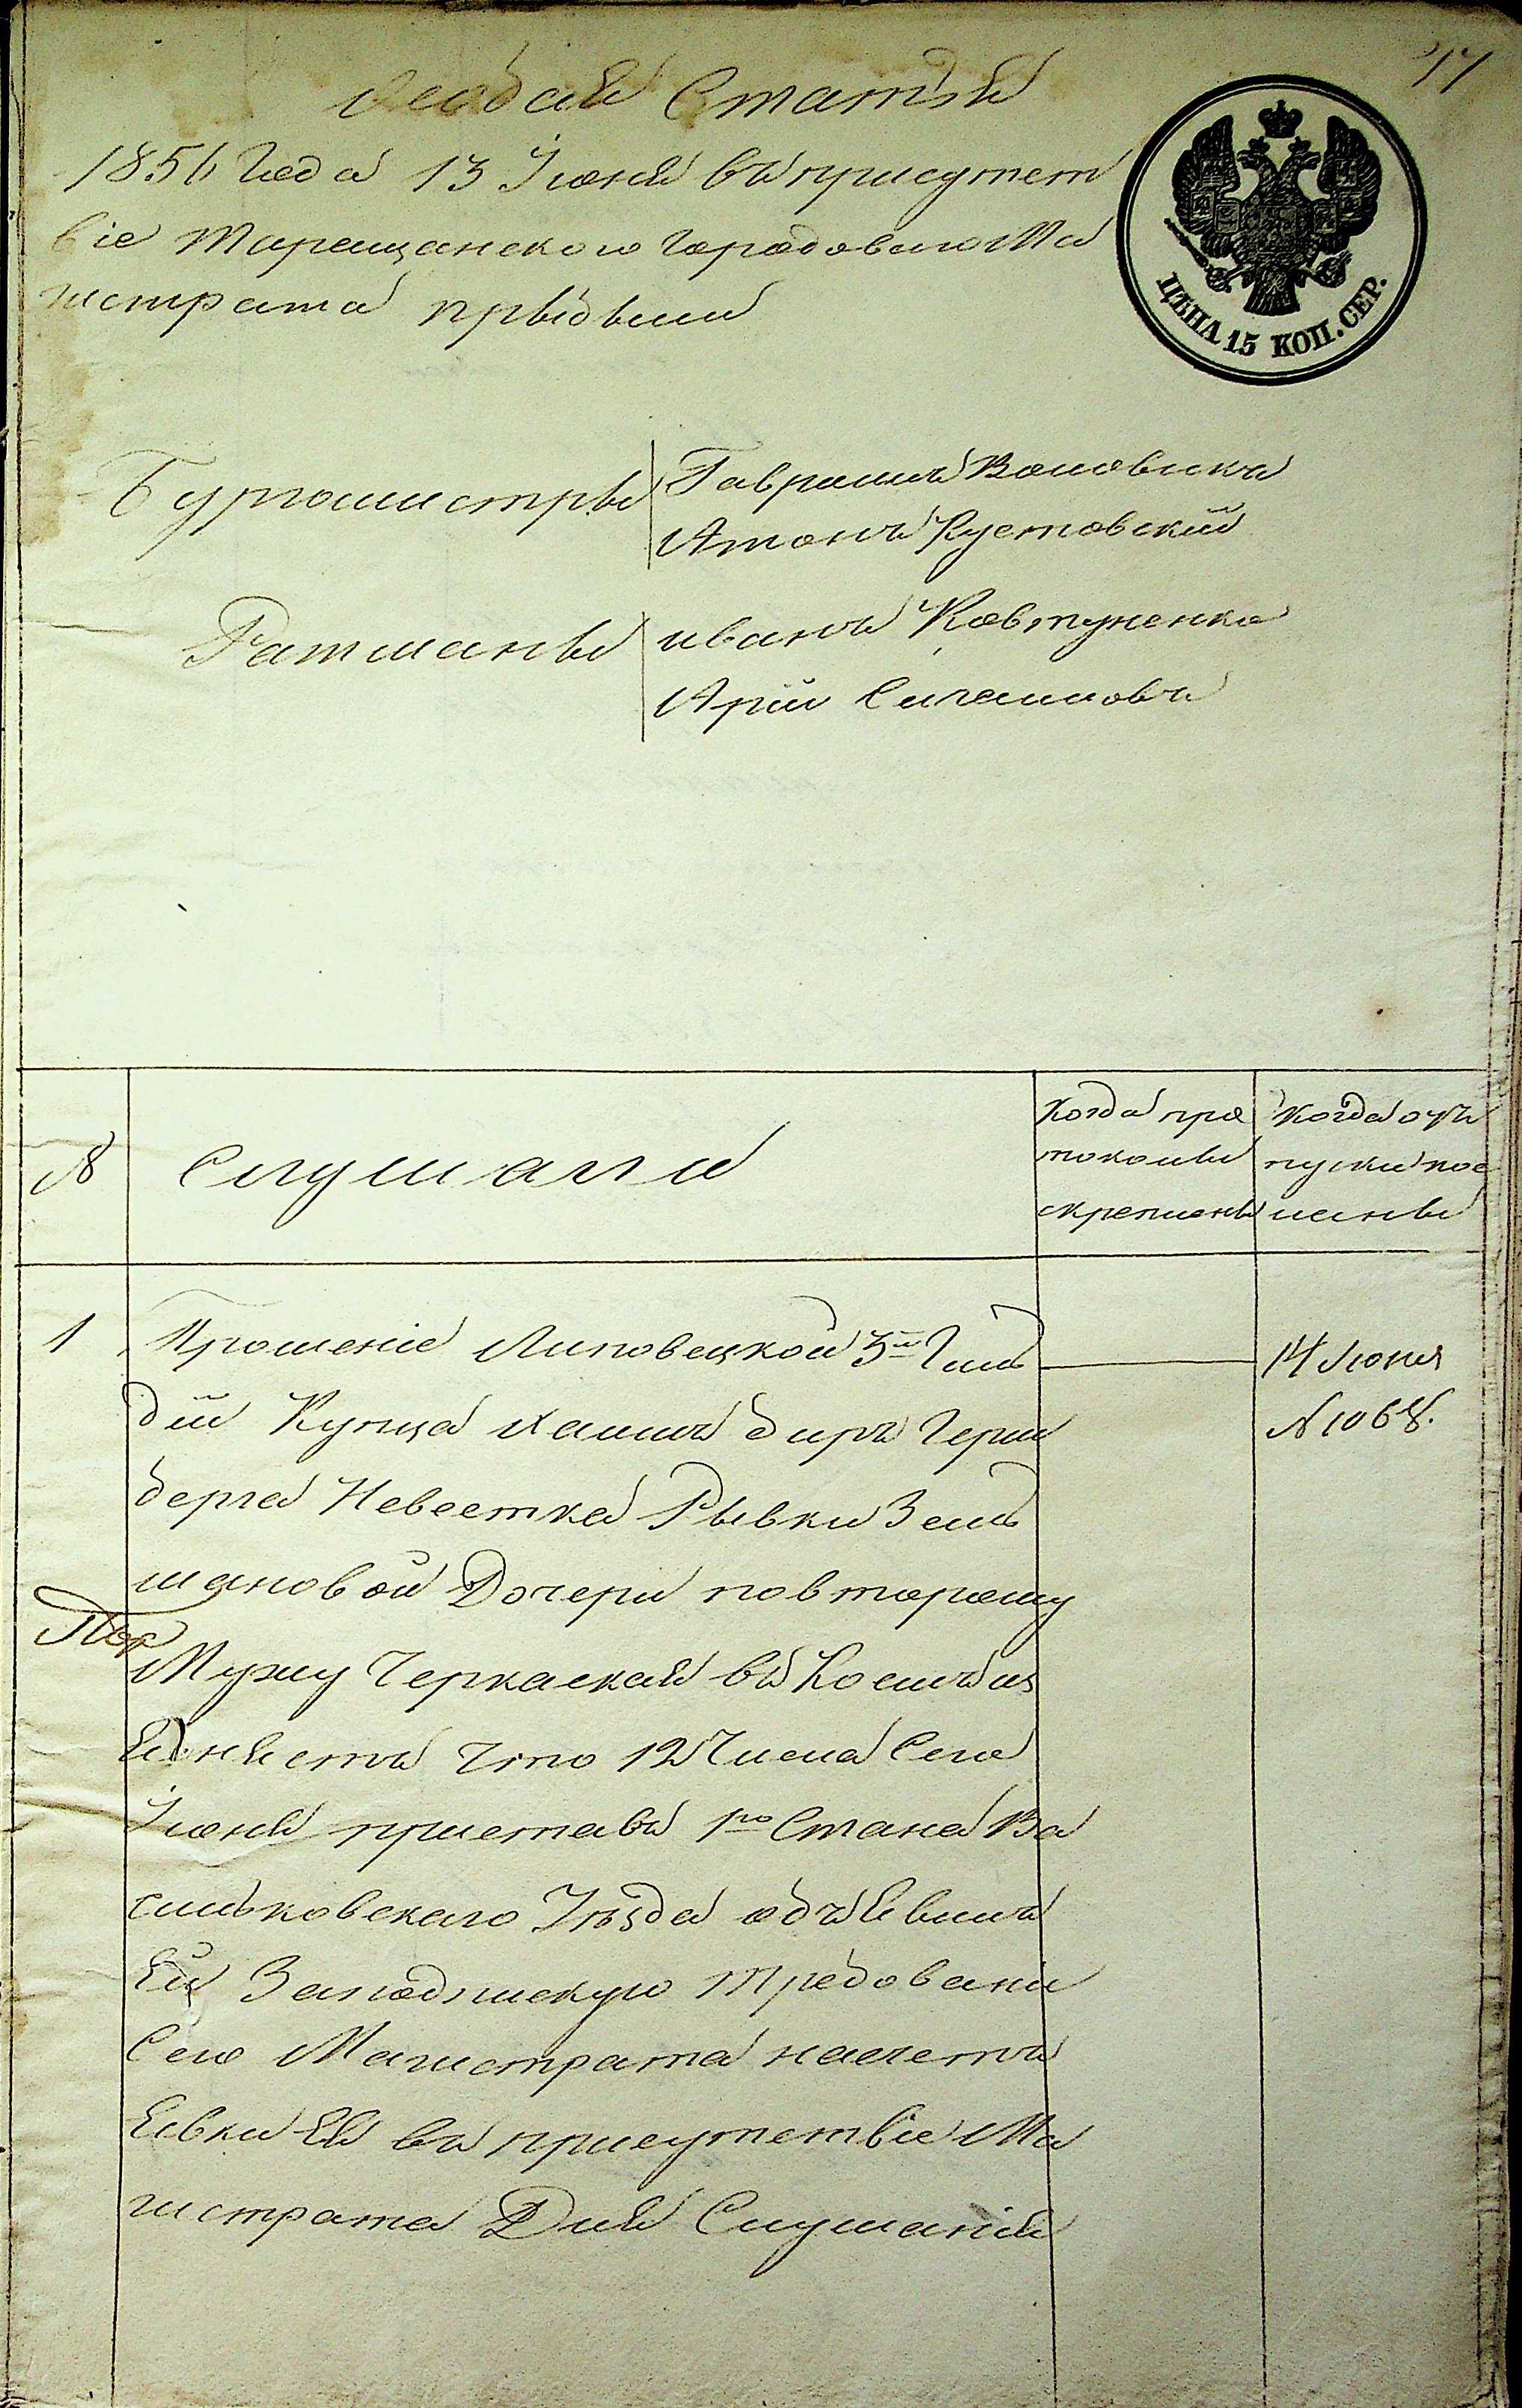 77
Особая Статья
1856 Года 13 Іюня въ присутст
віе Таращанского Городоваго Ма
гистрата прыбыли
ЦѢНА 15 КОП. СЕР.
Бургомистры
Гаврыилъ Воловикъ
Антонъ Кустовскій
Ратманы
иванъ Ковтуненко
Арій Сигаловъ
№
Слушали
Когда про
токолы
скреплены
Когда отъ
пуски пос
ланы
1
Прошеніе Липовецкой 3й Гиль
14 Июня
№ 1068.
діи Купца Хаимъ Беръ Герш
берга Невестка Рывки Зель
мановой Дочери повторому
Мужу Черкаская въ Коемъ из
ясняетъ Что 12 Числа Сего
Іюня приставъ 1го Стана Ва
сильковскаго Уѣзда объявилъ
Ей Заподпискую требованіе
Сего Магистрата насчетъ
Явки Ея въ присутствіе Ма
гистрата Для Слушанія